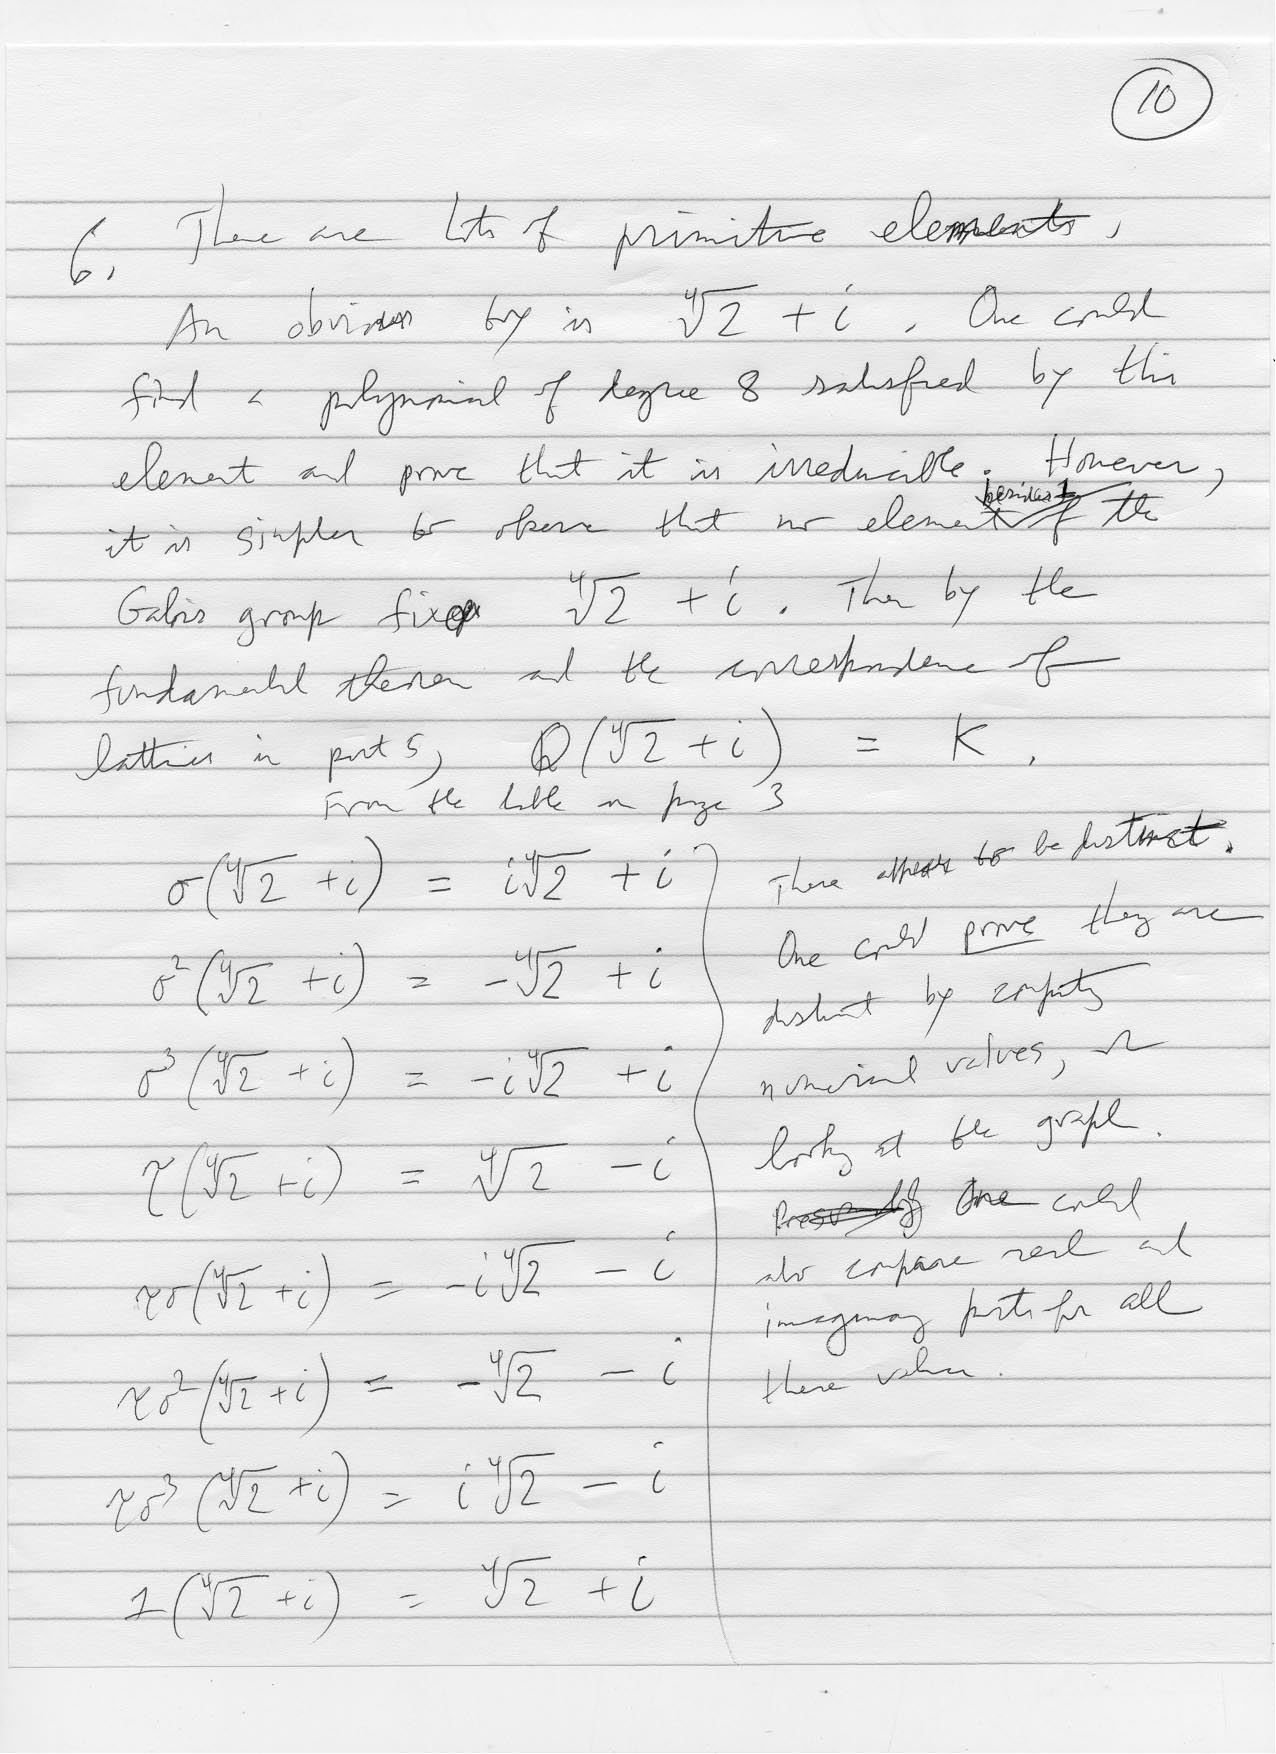 10
6. There are lots of primitive elements,
An obvious try is ∜2 + i . One could
find a polynomial of degree 8 satisfied by this
element and prove that it is irreducible. However,
besides 1
it is simpler to observe that no element of the
Galois group fixes ∜2 + i . Then by the
fundamental theorem and the correspondence of
lattices in part 5, Q(∜2 + i) = K .
From the table on page 3
σ(∜2 + i) = i∜2 + i
σ²(∜2 + i) = -∜2 + i
σ³(∜2 + i) = -i∜2 + i
τ(∜2 + i) = ∜2 - i
τσ(∜2 + i) = -i∜2 - i
τσ²(∜2 + i) = -∜2 - i
τσ³(∜2 + i) = i∜2 - i
1(∜2 + i) = ∜2 + i
These appear to be distinct.
One could prove they are
distinct by computing
numerical values, or
looking at the graph.
One could
also compare real and
imaginary parts for all
these values.